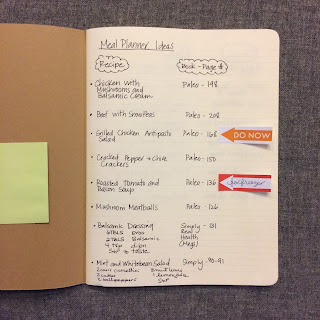 Meal Planner Ideas
Recipe
Book - Page #
Chicken with Mushrooms and Balsamic Cream
Paleo - 198
Beef with Snow Peas
Paleo - 208
Grilled Chicken Antipasto Salad
Paleo - 168
DO NOW
Cracked Pepper + Chive Crackers
Paleo - 150
Roasted Tomato and Bacon Soup
Paleo - 136
Mushroom Meatballs
Paleo - 126
Balsamic Dressing
Simply Real Health (Mag)
- 131
4 TBLS Evoo
2 TBLS Balsamic
dijon
S+P to taste
Mint and White bean Salad
Simply - 90-91